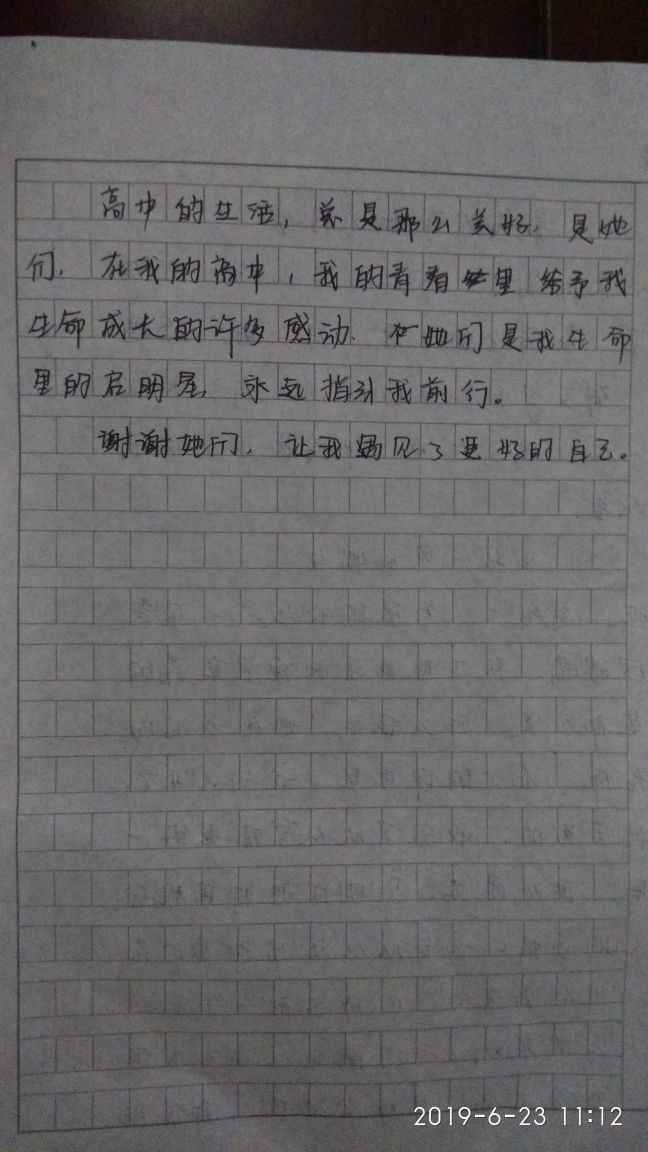 高中的生活，总是那么美好，是她
们，在我的高中，我的青春里给予我
生命成长的许多感动，她们是我生命
里的启明星，永远指引我前行。
谢谢她们，让我遇见了更好的自己。
2019-6-23 11:12